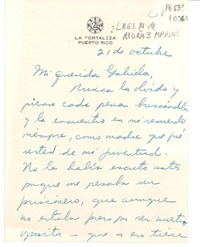 LA FORTALEZA
PUERTO RICO
21 de octubre
Mi querida Gabriela,
Nunca la olvido y
pienso cada pena buscándola
y la encuentro en mi recuerdo
siempre, como madre que fué
usted de mi juventud.
No le había escrito antes
porque me pesaba un
prisionero, que aunque
no estaba preso por ser
- que a eso tiene